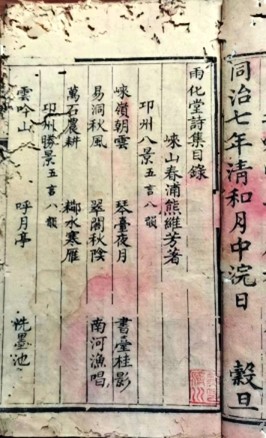 同治七年清和月中浣日　穀旦
雨化堂詩集目錄
崍山春浦熊維芳著
邛州八景五言八韻
崍嶺朝雲　琴臺夜月　書臺桂影
易洞秋風　翠閣秋陰　南河漁唱
萬石農耕　鄰水寒雁
邛州勝景五言八韻
雲吟山　呼月亭　洗墨池